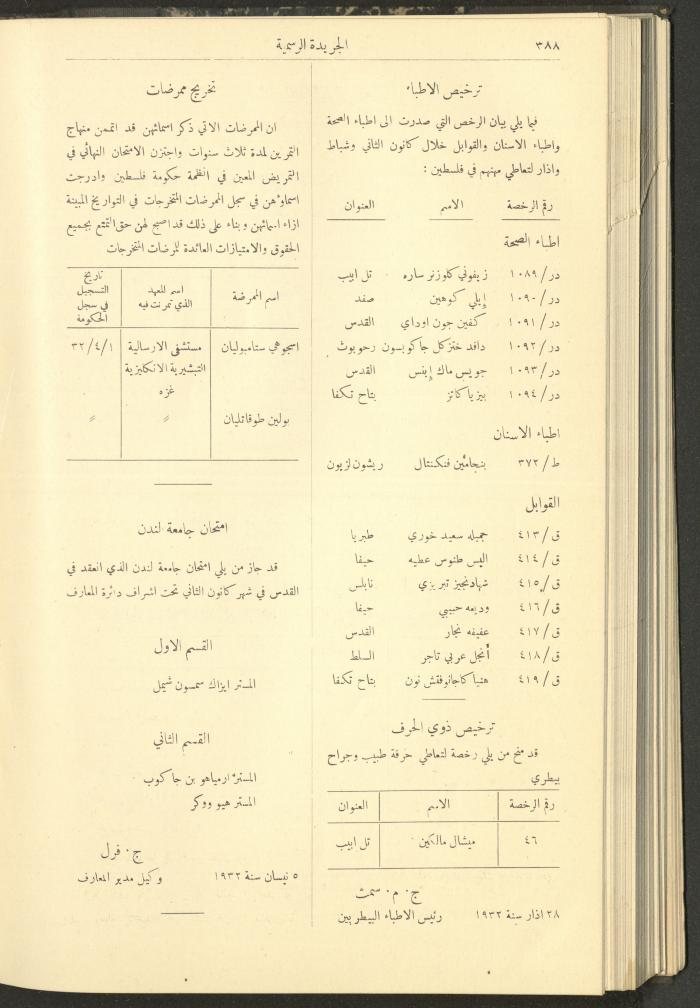 ٣٨٨
الجريدة الرسمية
ترخيص الاطباء
فيما يلي بيان الرخص التي صدرت الى اطباء الصحة
واطباء الاسنان والقوابل خلال كانون الثاني وشباط
واذار لتعاطي مهنهم في فلسطين :
رقم الرخصة الاسم العنوان
اطباء الصحة
در/ ١٠٨٩ زيفوني كلوزنر ساره تل ابيب
در/ ١٠٩٠ إيلي كوهين صفد
در/ ١٠٩١ كفين جون اوداي القدس
در/ ١٠٩٢ دافد ختزكل جاكوبسون رحوبوث
در/ ١٠٩٣ جويس ماك إينس القدس
در/ ١٠٩٤ بيز ياكاتز بتاح تكفا
اطباء الاسنان
ط/ ٣٧٢ بنجامين فنكنتال ريشون لزيون
القوابل
ق/ ٤١٣ جميله سعيد خوري طبريا
ق/ ٤١٤ اليس طنوس عطيه حيفا
ق/ ٤١٥ شهادنجيز تبريزي نابلس
ق/ ٤١٦ وديعه حبيبي حيفا
ق/ ٤١٧ عفيفه نجار القدس
ق/ ٤١٨ أنجل عربي تاجر السلط
ق/ ٤١٩ هنيا كاجانوفقش نون بتاح تكفا
ترخيص ذوي الحرف
قد منح من يلي رخصة لتعاطي حرفة طبيب وجراح
بيطري
رقم الرخصة الاسم العنوان
٤٦ ميشال مالكين تل ابيب
ج. م. سمث
٢٨ اذار سنة ١٩٣٢ رئيس الاطباء البيطريين
تخريج ممرضات
ان الممرضات الاتي ذكر اسمائهن قد اتممن منهاج
التمرين لمدة ثلاث سنوات واجتزن الامتحان النهائي في
التمريض المعين في انظمة حكومة فلسطين وادرجت
اسماؤهن في سجل الممرضات المتخرجات في التواريخ المبينة
ازاء اسمائهن وبناء على ذلك قد اصبح لهن حق التمتع بجميع
الحقوق والامتيازات العائدة للمرضات المتخرجات
اسم الممرضة
اسم المعهد
الذي تمرنت فيه
تاريخ
التسجيل
في سجل
الحكومة
اسجوهي ستامبوليان مستشفى الارسالية ٣٢/٤/١
التبشيرية الانكليزية
غزه
بولين طوقاتليان " "
امتحان جامعة لندن
قد جاز من يلي امتحان جامعة لندن الذي انعقد في
القدس في شهر كانون الثاني تحت اشراف دائرة المعارف
القسم الاول
المستر ايزاك سمسون شيمل
القسم الثاني
المستر ارمياهو بن جاكوب
المستر هيو ووكر
ج. فرل
٥ نيسان سنة ١٩٣٢ وكيل مدير المعارف